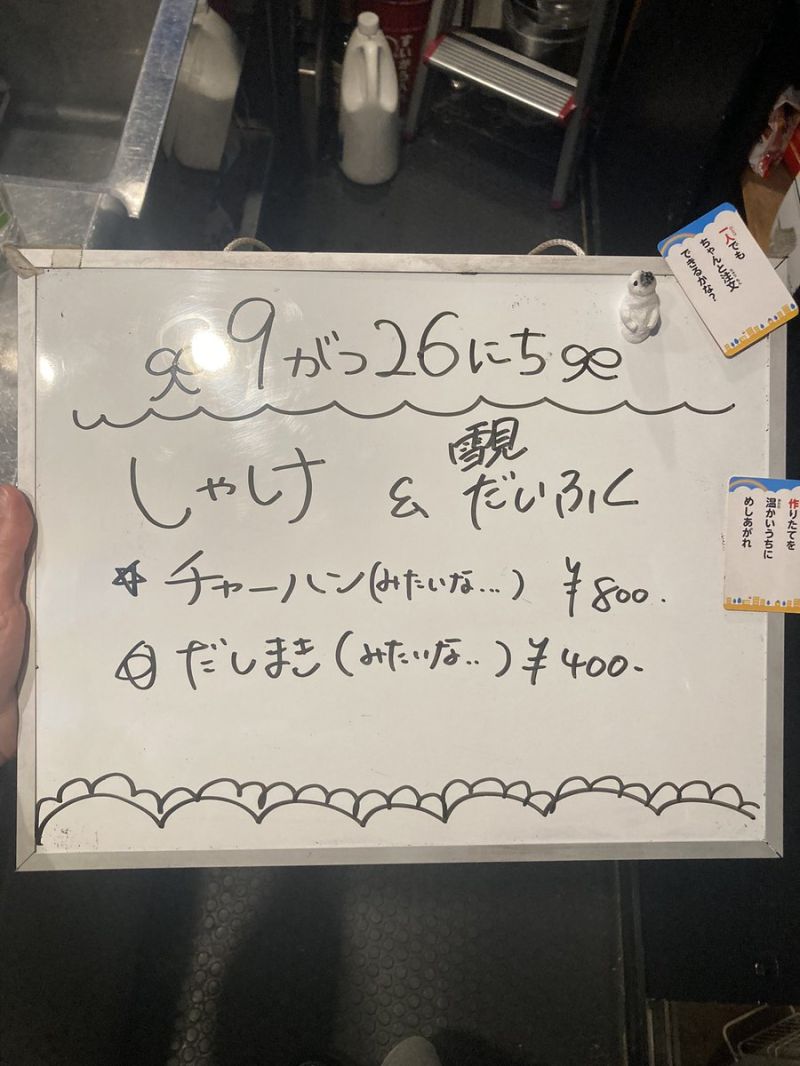 9がつ26にち
しゃけ & 雪見だいふく
☆チャーハン(みたいな...) ¥800.
だしまき(みたいな..) ¥400-
一人でも
ちゃんと注文
できるかな?
作りたてを
温かいうちに
めしあがれ